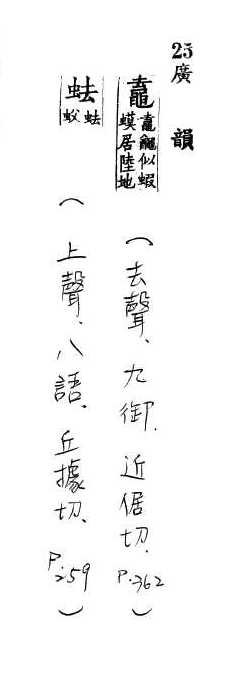 25廣韻
鼁
鼁似蝦
蟆居陸地
(去聲、九御.近倨切.P.362)
(上聲、八語.丘據切、P.259)